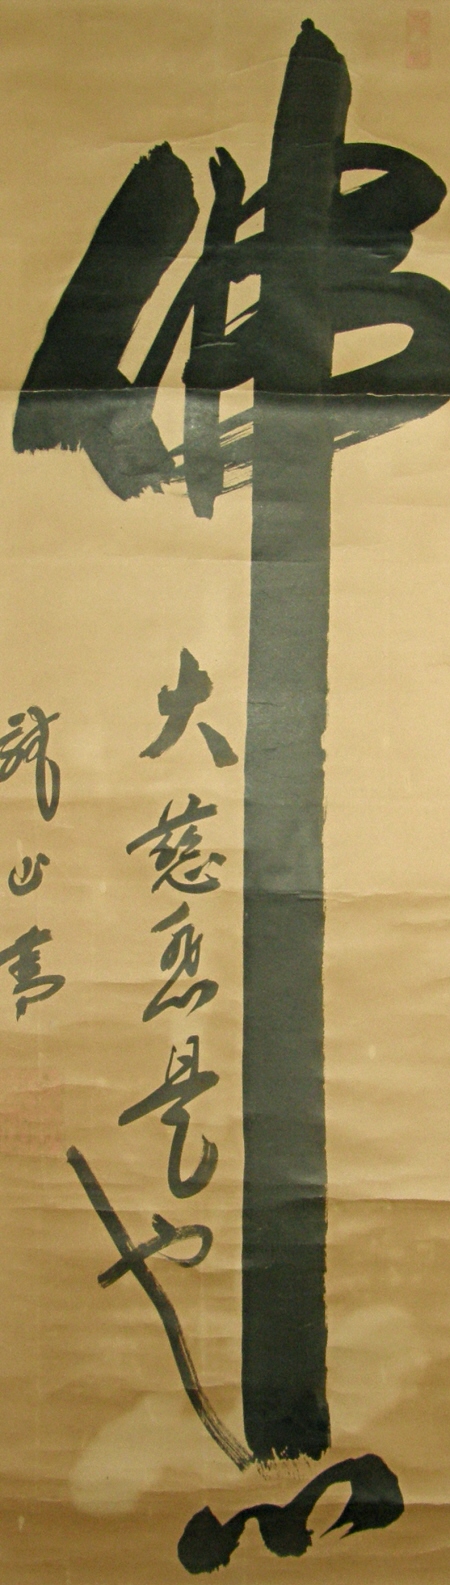 佛心
大慈悲是也
誠山書